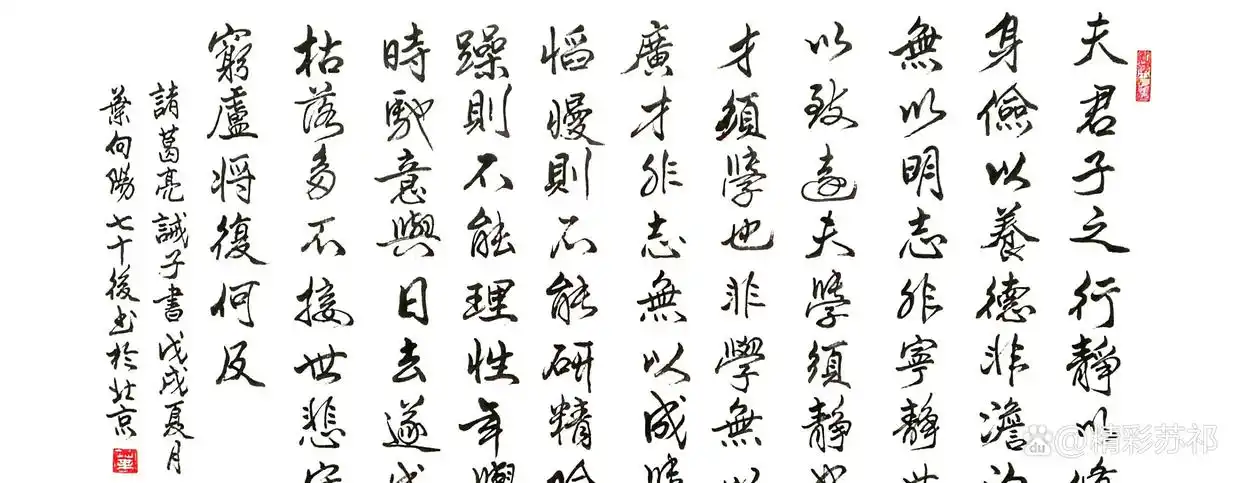 夫君子之行靜以修
身儉以養德非澹泊
無以明志非寧靜無
以致遠夫學須靜也
才須學也非學無以
廣才非志無以成
慆慢則不能研精險
躁則不能理性年與
時馳意與日去遂成
枯落多不接世悲守
窮廬將復何及
諸葛亮誡子書戊戌夏月
葉向陽七十後书於北京
@精彩苏祁